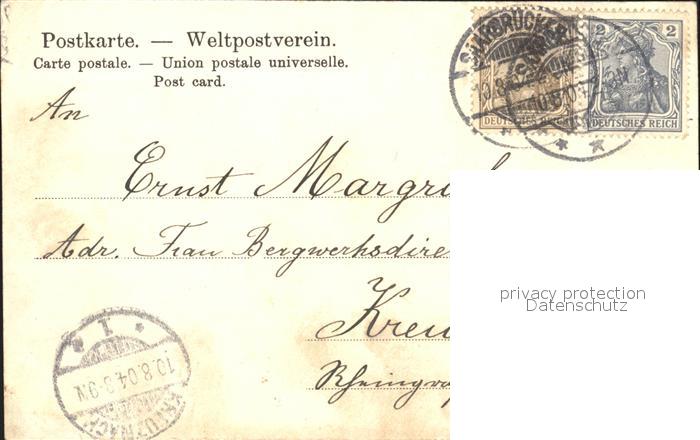 Postkarte. — Weltpostverein.
Carte postale. — Union postale universelle.
Post card.
An
Ernst Margr
Adr. Frau Bergwerksdire
Kreu
Rheingra
SAARBRÜCKEN
10.8.04
2 2
DEUTSCHES REICH DEUTSCHES REICH
privacy protection
Datenschutz
1
10.8.04.8-9N
KREUZNACH